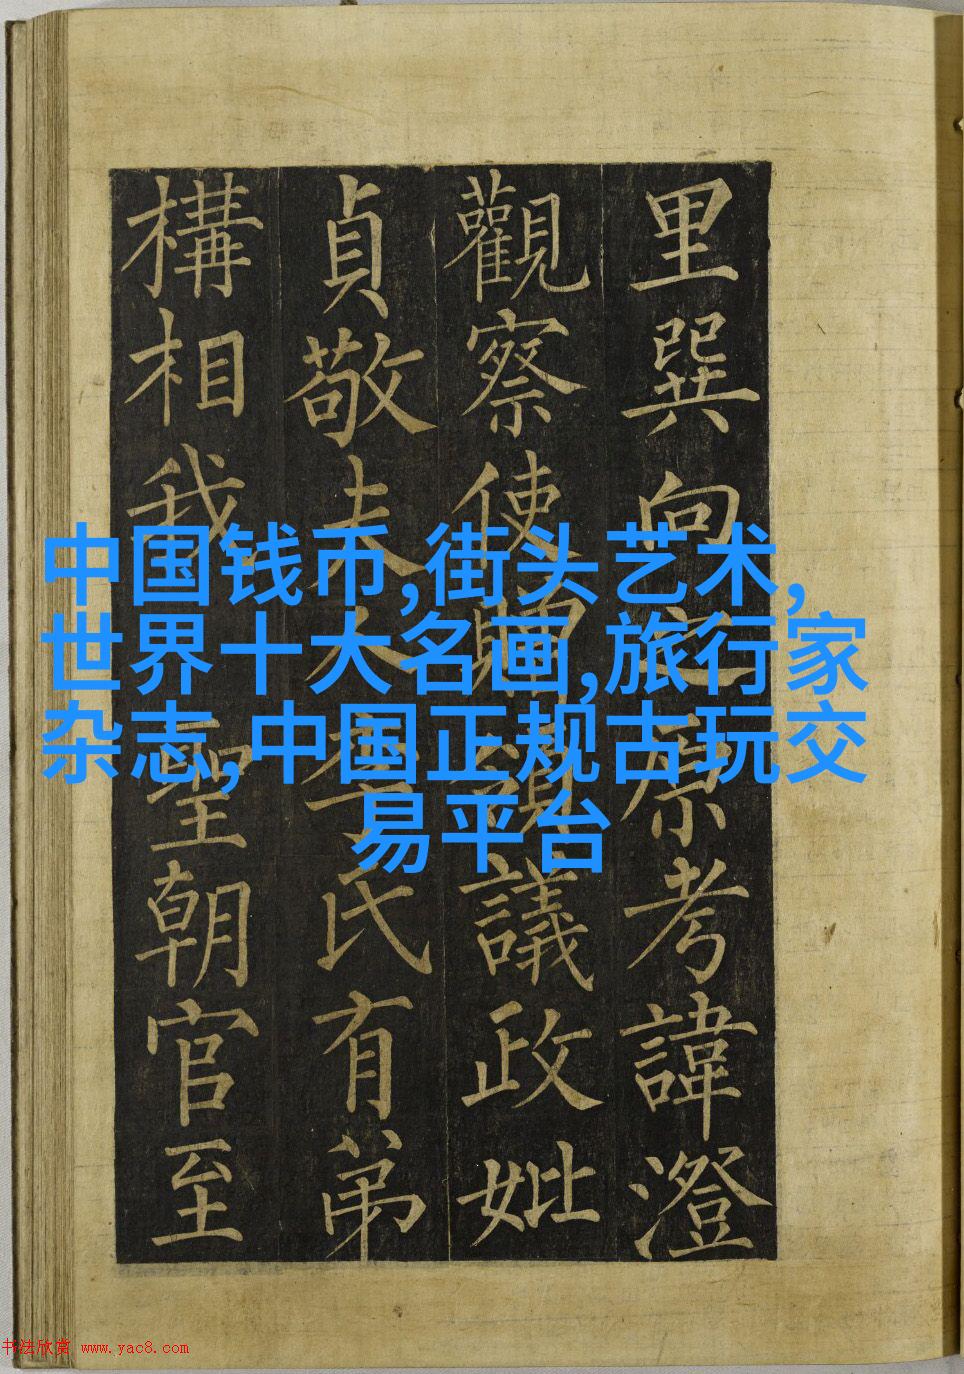 里巽向之原考諱澄
觀察使贈領議政妣
貞敬夫人李氏有弟
構相我聖朝官至
中国钱币,街头艺术,
世界十大名画,旅行家
杂志,中国正规古玩交
易平台
书法欣赏 www.yac8.com